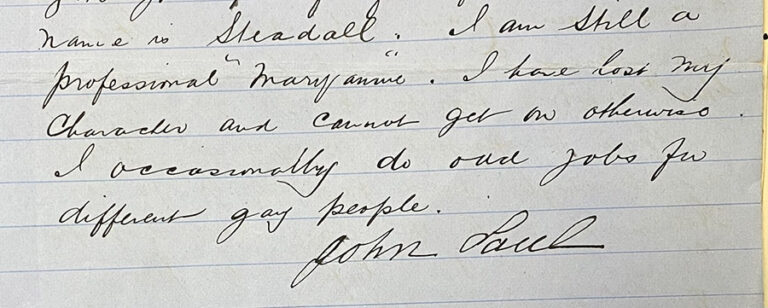 name is Steadall. I am still a
professional "Maryanne". I have lost my
Character and cannot get on otherwise.
I occasionally do odd jobs for
different gay people.
John Saul